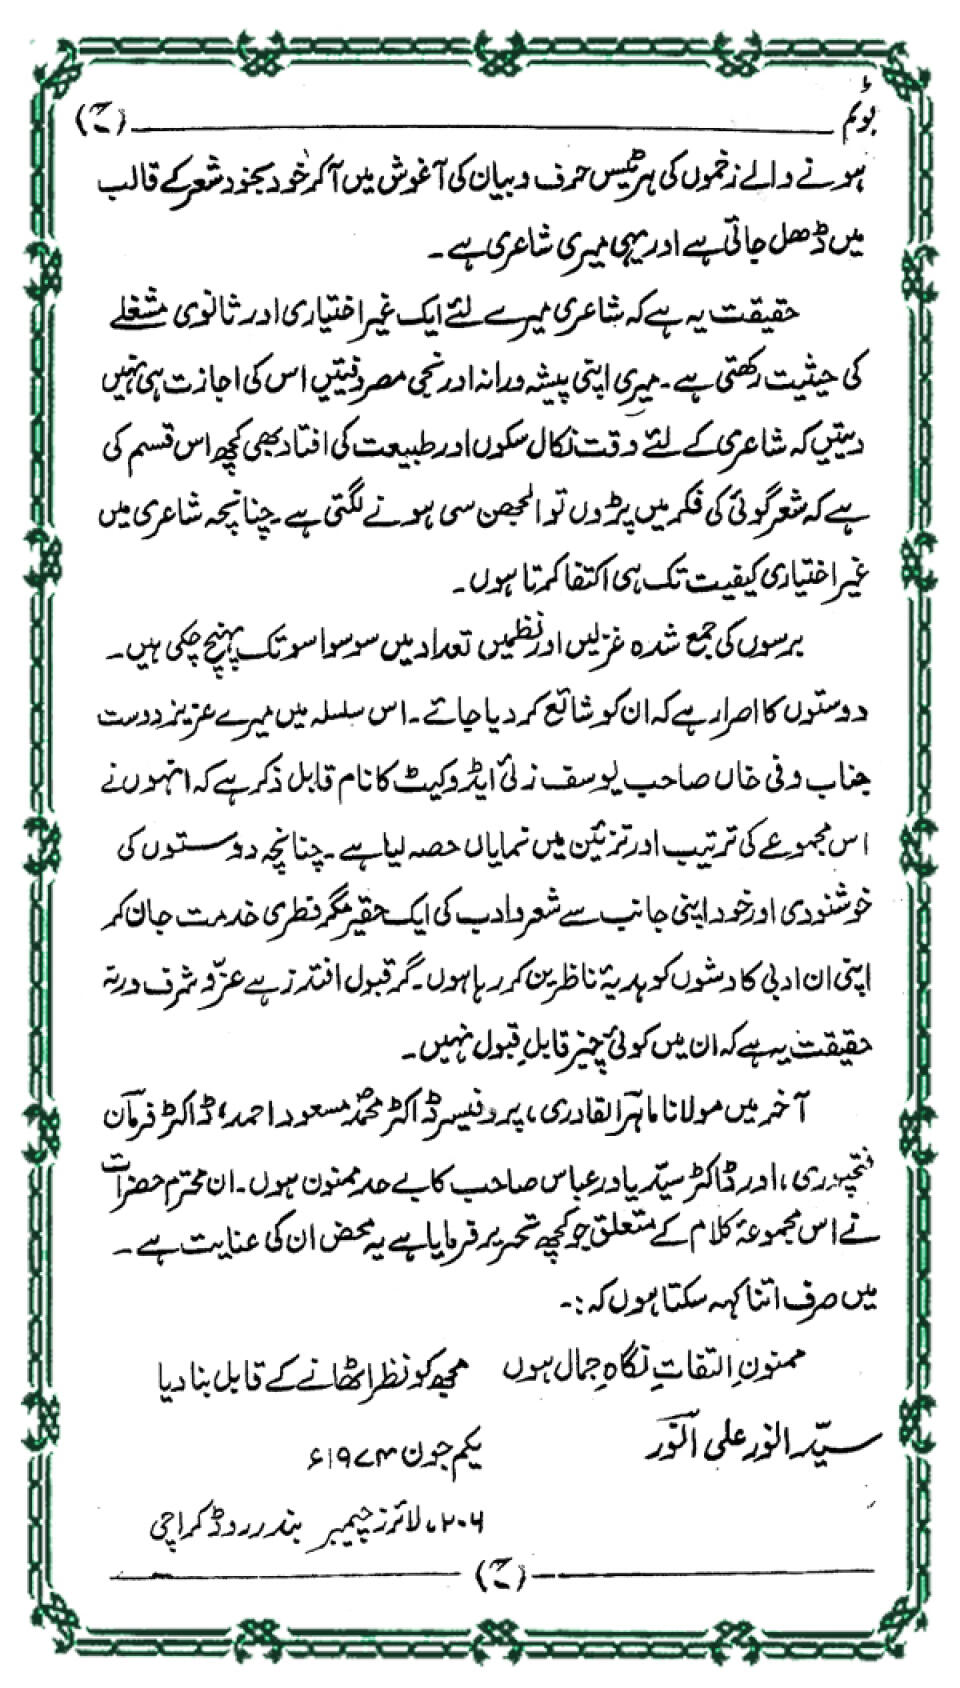 (ح)
ہونے والے زخموں کی ہر ٹیس حرف و بیان کی آغوش میں آکر خود بخود شعر کے قالب
میں ڈھل جاتی ہے اور یہی میری شاعری ہے۔
حقیقت یہ ہے کہ شاعری میرے لئے ایک غیر اختیاری اور ثانوی مشغلے
کی حیثیت رکھتی ہے۔ میری اپنی پیشہ ورانہ اور نجی مصروفیتیں اس کی اجازت ہی نہیں
دیتیں کہ شاعری کے لئے وقت نکال سکوں اور طبیعت کی افتاد بھی کچھ اس قسم کی
ہے کہ شعر گوئی کی فکر میں پڑوں تو الجھن سی ہونے لگتی ہے۔ چنانچہ شاعری میں
غیر اختیاری کیفیت تک ہی اکتفا کرتا ہوں۔
برسوں کی جمع شدہ غزلیں اور نظمیں تعداد میں سو سوا سو تک پہنچ چکی ہیں۔
دوستوں کا اصرار ہے کہ ان کو شائع کر دیا جائے۔ اس سلسلہ میں میرے عزیز دوست
جناب وفی خاں صاحب یوسف زئی ایڈوکیٹ کا نام قابل ذکر ہے کہ انہوں نے
اس مجموعے کی ترتیب اور تزئین میں نمایاں حصہ لیا ہے۔ چنانچہ دوستوں کی
خوشنودی اور خود اپنی جانب سے شعر و ادب کی ایک حقیر مگر فطری خدمت جان کر
اپنی ان ادبی کاوشوں کو ہدیۂ ناظرین کر رہا ہوں۔ گر قبول افتد زہے عزّ و شرف ورنہ
حقیقت یہ ہے کہ ان میں کوئی چیز قابلِ قبول نہیں۔
آخر میں مولانا ماہر القادری، پروفیسر ڈاکٹر محمد مسعود احمد، ڈاکٹر فرمان
فتحپوری، اور ڈاکٹر سیّد یاور عباس صاحب کا بے حد ممنون ہوں۔ ان محترم حضرات
نے اس مجموعۂ کلام کے متعلق جو کچھ تحریر فرمایا ہے یہ محض ان کی عنایت ہے۔
میں صرف اتنا کہہ سکتا ہوں کہ:۔
ممنونِ التفاتِ نگاہِ جمال ہوں مجھ کو نظر اٹھانے کے قابل بنا دیا
سیّد انور علی انور
یکم جون ۱۹۷۴ء
۲۰۶، لائرز چیمبر بندر روڈ کراچی
(ح)